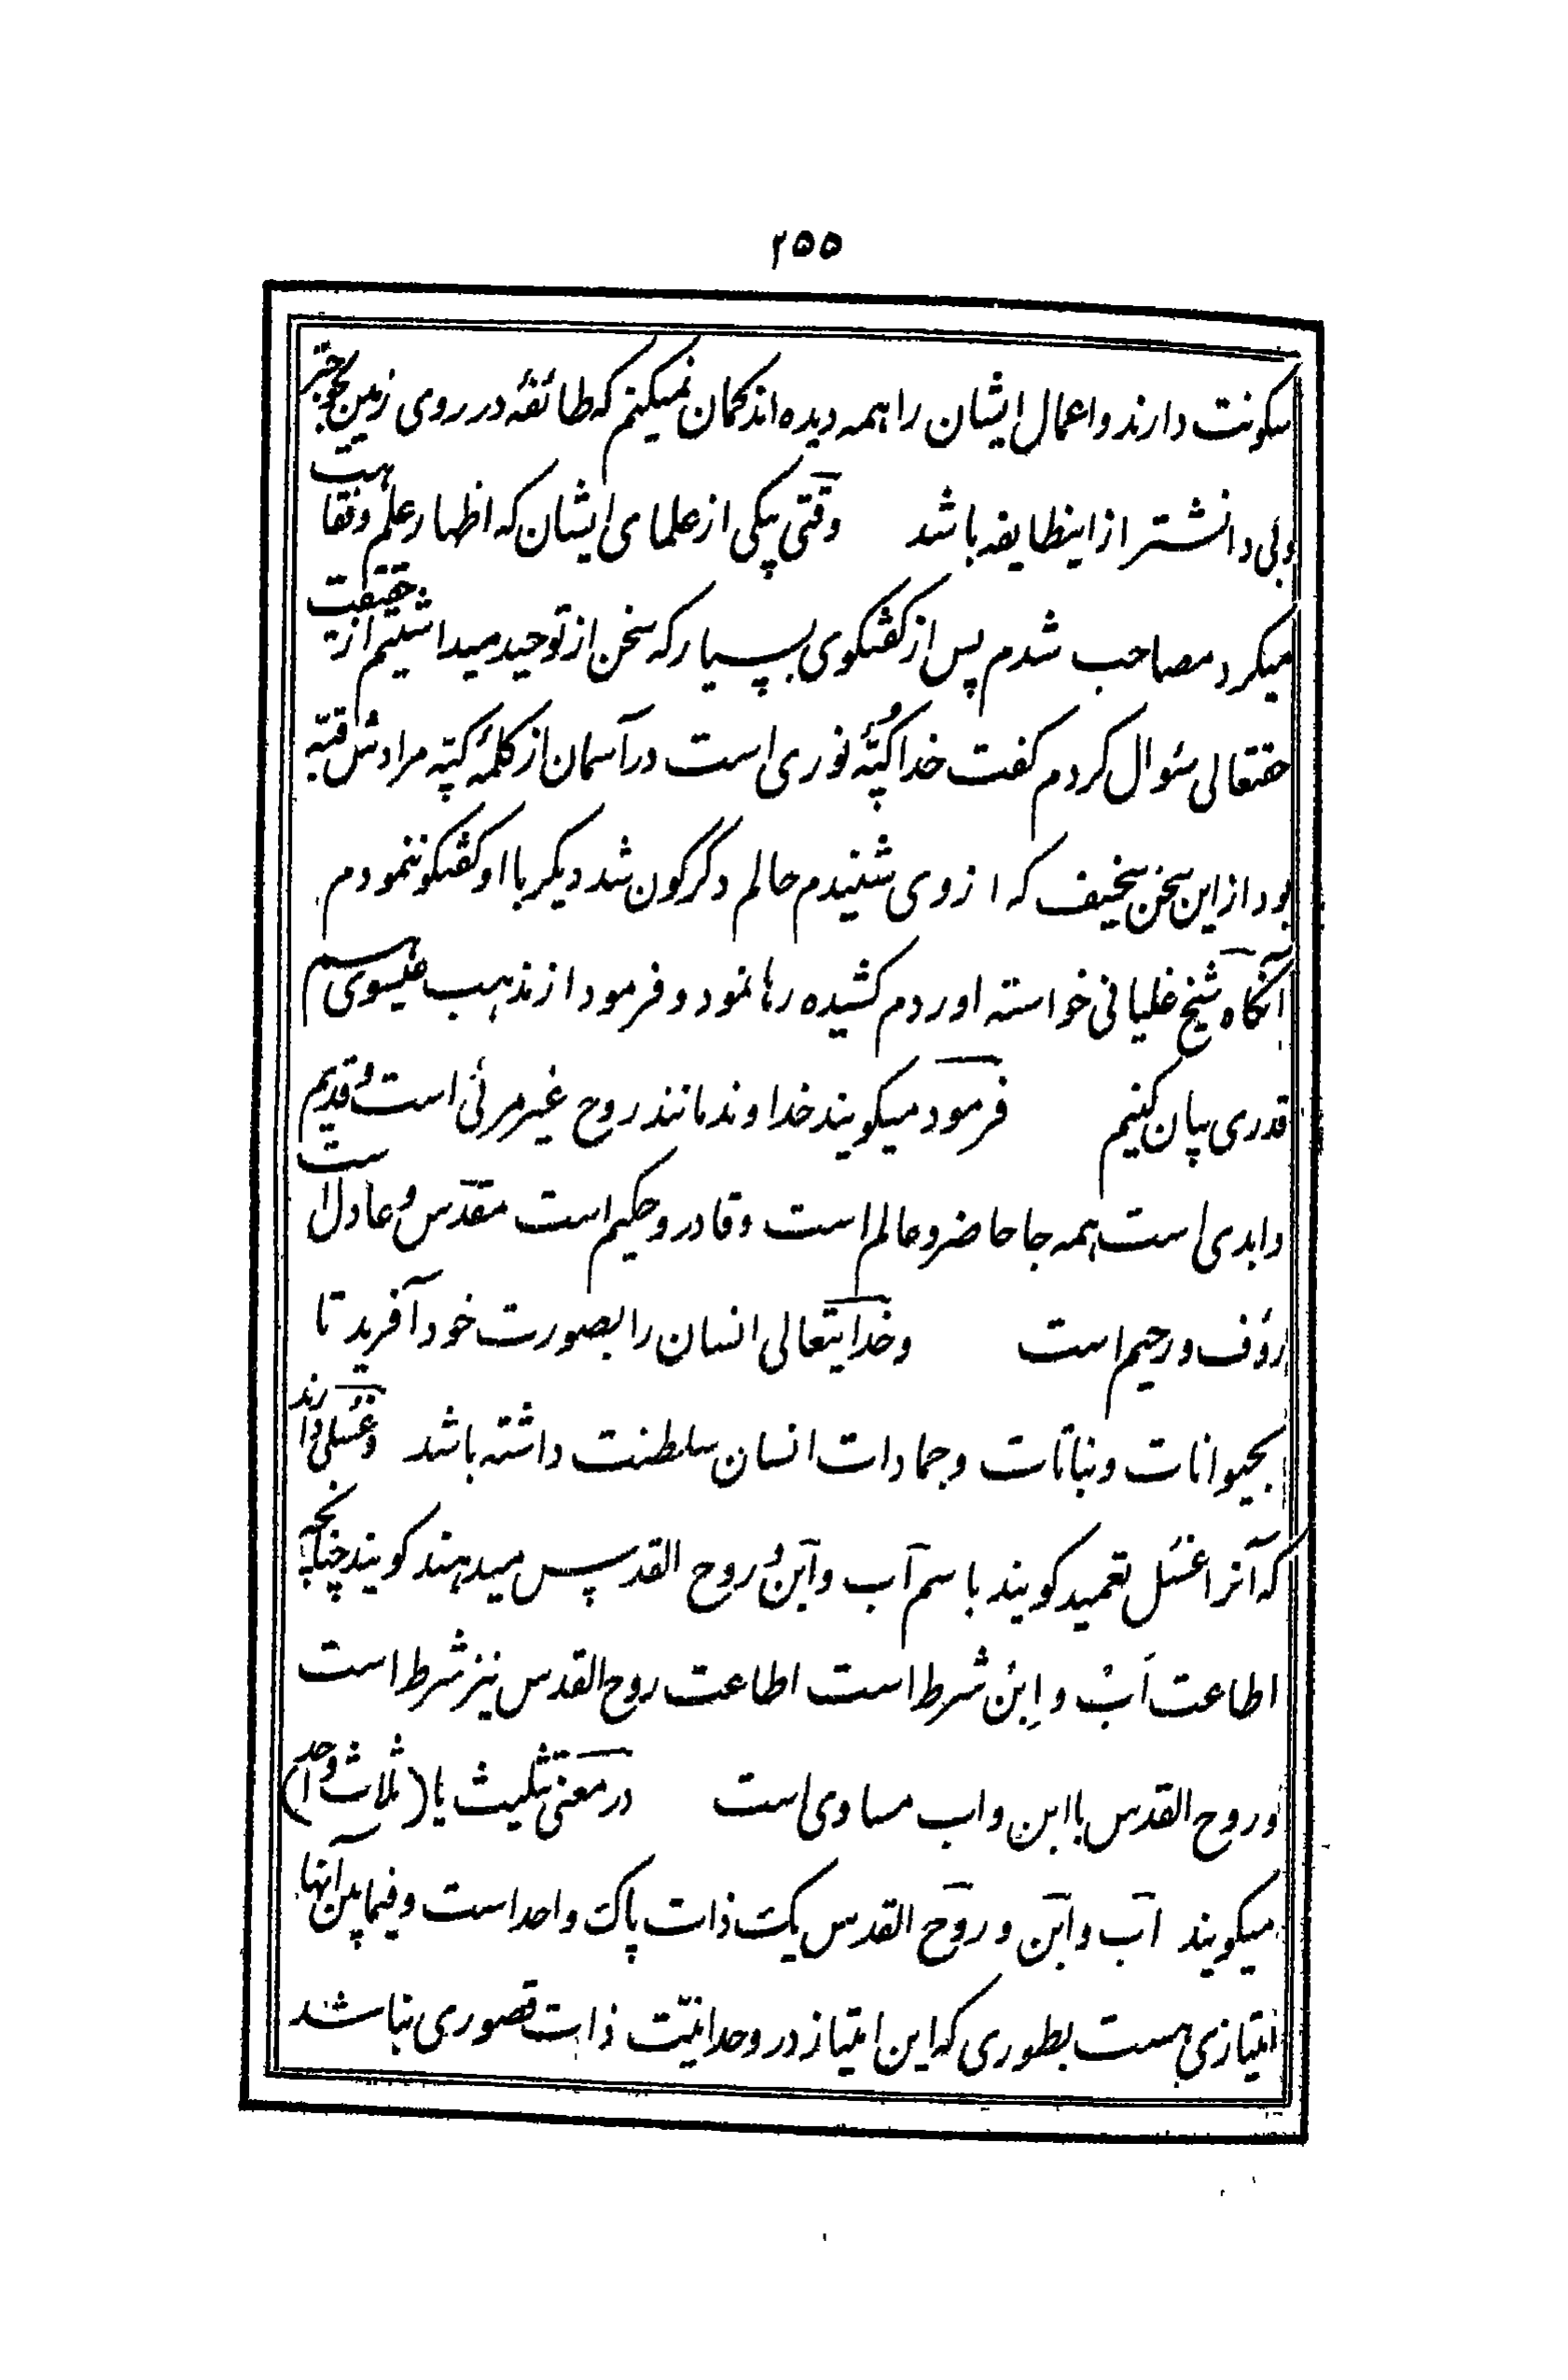 ۲۵۵
سکونت دارند و اعمال ایشان را همه دیده‌اند کمان نمیکنم که طائفهٔ در روی زمین
ولی دانشتر از اینطایفه باشد وقتی بیکی از علمای ایشان که اظهار علم و نقاهت
میکرد مصاحب شدم پس از کفتکوی بسیار که سخن از توحید میداشتیم از حقیقت
حقتعالی سئوال کردم کفت خدا کپّهٔ نوری است در آسمان از کلمهٔ کپه مرادش قبّه
بود از این سخن سخیف که از وی شنیدم حالم دگرگون شد دیکر با او کفتکو ننمودم
آنگاه شیخ غلیانی خواسته اورد دم کشیده رها نمود و فرمود از مذهب عیسوی هم
قدری بیان کنیم فرمود میکویند خداوند مانند روح غیر مرئی است و قدیم
و ابدی است همه جا حاضر و عالم است و قادر و حکیم است مقدّس و عادل است
رؤف و رحیم است و خدایتعالی انسان را بصورت خود آفرید تا
بحیوانات و نباتات و جمادات انسان سلطنت داشته باشد و غسلی دارند
که آنرا غسل تعمید کویند باسم آب و ابن و روح القدس میدهند کویند چنانچه
اطاعت اَبْ و اِبن شرط است اطاعت روح القدس نیز شرط است
و روح القدس با ابن و اب مساوی است در معنی تثلیث یا (ثلاث واحد)
میکویند آب و ابن و روح القدس یک ذات پاک و احد است و فیما بین آنها
امتیازی هست بطوری که این امتیاز در وحدانیّت ذات قصوری نباشد